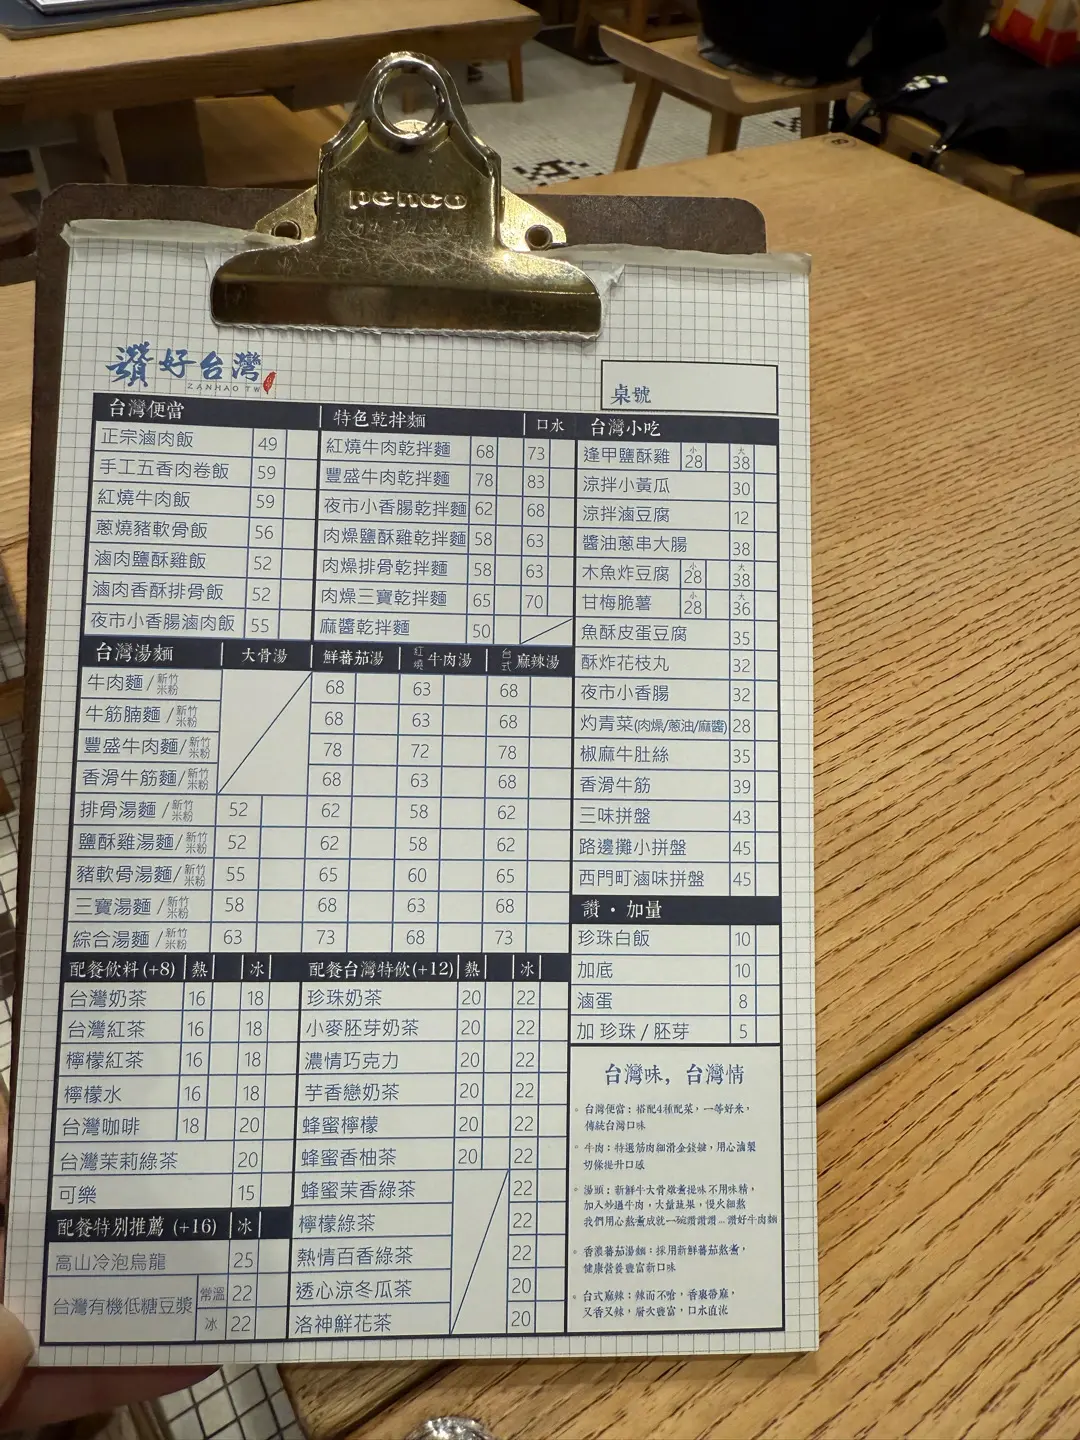 penco
讚好台灣
ZANHAO TW
桌號
台灣便當
正宗滷肉飯 49
手工五香肉卷飯 59
紅燒牛肉飯 59
蔥燒豬軟骨飯 56
滷肉鹽酥雞飯 52
滷肉香酥排骨飯 52
夜市小香腸滷肉飯 55
特色乾拌麵 口水
紅燒牛肉乾拌麵 68 73
豐盛牛肉乾拌麵 78 83
夜市小香腸乾拌麵 62 68
肉燥鹽酥雞乾拌麵 58 63
肉燥排骨乾拌麵 58 63
肉燥三寶乾拌麵 65 70
麻醬乾拌麵 50
台灣湯麵 大骨湯 鮮蕃茄湯 紅燒牛肉湯 台式麻辣湯
牛肉麵/新竹米粉 68 63 68
牛筋腩麵/新竹米粉 68 63 68
豐盛牛肉麵/新竹米粉 78 72 78
香滑牛筋麵/新竹米粉 68 63 68
排骨湯麵/新竹米粉 52 62 58 62
鹽酥雞湯麵/新竹米粉 52 62 58 62
豬軟骨湯麵/新竹米粉 55 65 60 65
三寶湯麵/新竹米粉 58 68 63 68
綜合湯麵/新竹米粉 63 73 68 73
配餐飲料 (+8) 熱 冰
台灣奶茶 16 18
台灣紅茶 16 18
檸檬紅茶 16 18
檸檬水 16 18
台灣咖啡 18 20
台灣茉莉綠茶 20
可樂 15
配餐特別推薦 (+16) 冰
高山冷泡烏龍 25
台灣有機低糖豆漿 常溫 22
冰 22
配餐台灣特飲 (+12) 熱 冰
珍珠奶茶 20 22
小麥胚芽奶茶 20 22
濃情巧克力 20 22
芋香戀奶茶 20 22
蜂蜜檸檬 20 22
蜂蜜香柚茶 20 22
蜂蜜茉香綠茶 22
檸檬綠茶 22
熱情百香綠茶 22
透心涼冬瓜茶 20
洛神鮮花茶 20
台灣小吃
逢甲鹽酥雞 小28 大38
涼拌小黃瓜 30
涼拌滷豆腐 12
醬油蔥串大腸 38
木魚炸豆腐 小28 大38
甘梅脆薯 小28 大36
魚酥皮蛋豆腐 35
酥炸花枝丸 32
夜市小香腸 32
灼青菜(肉燥/蔥油/麻醬) 28
椒麻牛肚絲 35
香滑牛筋 39
三味拼盤 43
路邊攤小拼盤 45
西門町滷味拼盤 45
讚・加量
珍珠白飯 10
加底 10
滷蛋 8
加 珍珠 / 胚芽 5
台灣味, 台灣情
台灣便當：搭配4種配菜，一等好米，
傳統台灣口味
牛肉：特選筋肉細滑金錢腱，用心滷製
切條提升口感
湯頭：新鮮牛大骨燉煮提味不用味精，
加入炒過牛肉，大量蔬果，慢火細熬
我們用心熬煮成就一碗讚讚讚...讚好牛肉麵
香濃蕃茄湯麵：採用新鮮蕃茄熬煮，
健康營養豐富新口味
台式麻辣：辣而不嗆，香裹帶麻，
又香又辣，層次豐富，口水直流